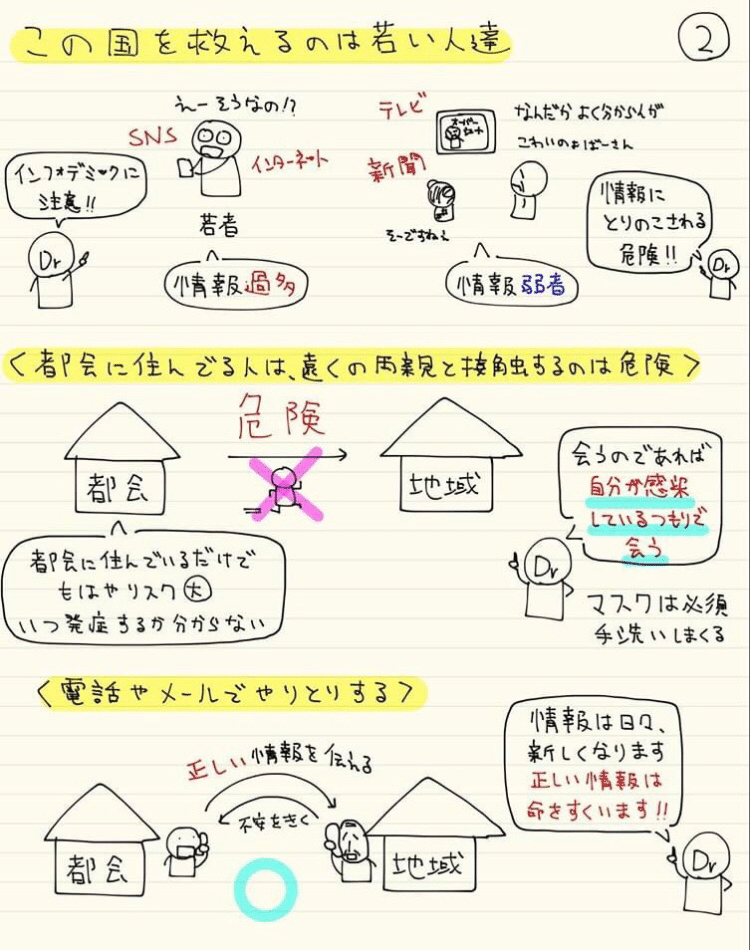 この国を救えるのは若い人達
②
えーそうなの!?
SNS
インターネット
インフォデミックに
注意!!
Dr
若者
情報過多
テレビ
新聞
なんだかよく分からんが
こわいのぉばーさん
そーですねぇ
情報弱者
情報に
とりのこされる
危険!!
Dr
〈都会に住んでる人は、遠くの両親と接触するのは危険〉
危険
都会
地域
都会に住んでいるだけで
もはやリスク大
いつ発症するか分からない
会うのであれば
自分が感染
しているつもりで
会う
Dr
マスクは必須
手洗いしまくる
〈電話やメールでやりとりする〉
正しい情報を伝える
不安をきく
都会
地域
情報は日々、
新しくなります
正しい情報は
命をすくいます!!
Dr